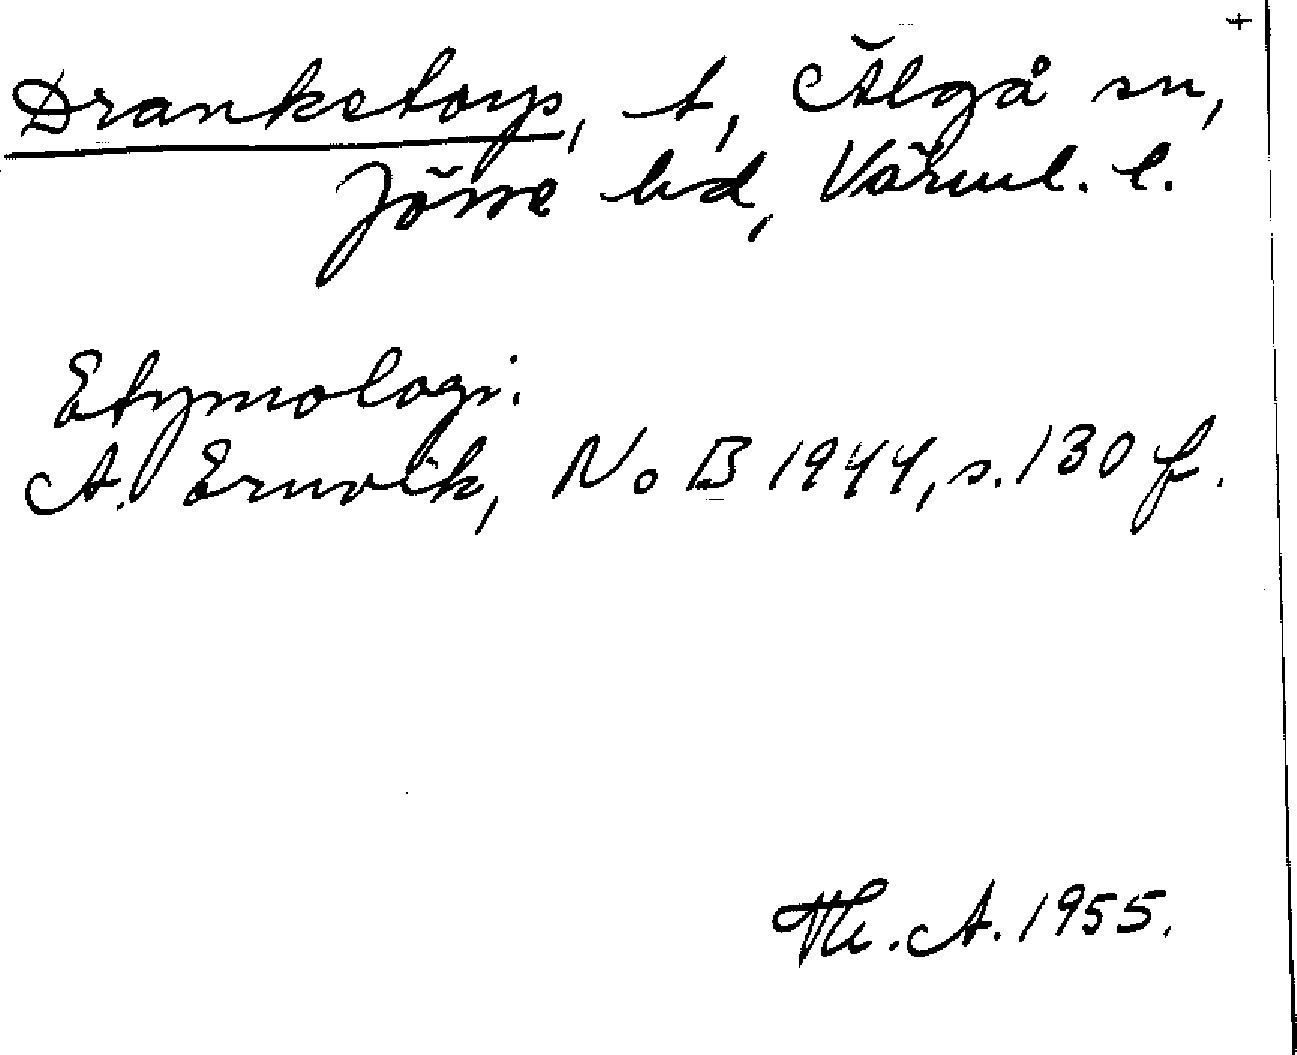 +
Dranketorp, t, Älgå sn,
Jösse hd, Värml. l.
Etymologi.
A. Ernvik, NoB 1944, s. 130 f.
Th. A. 1955.